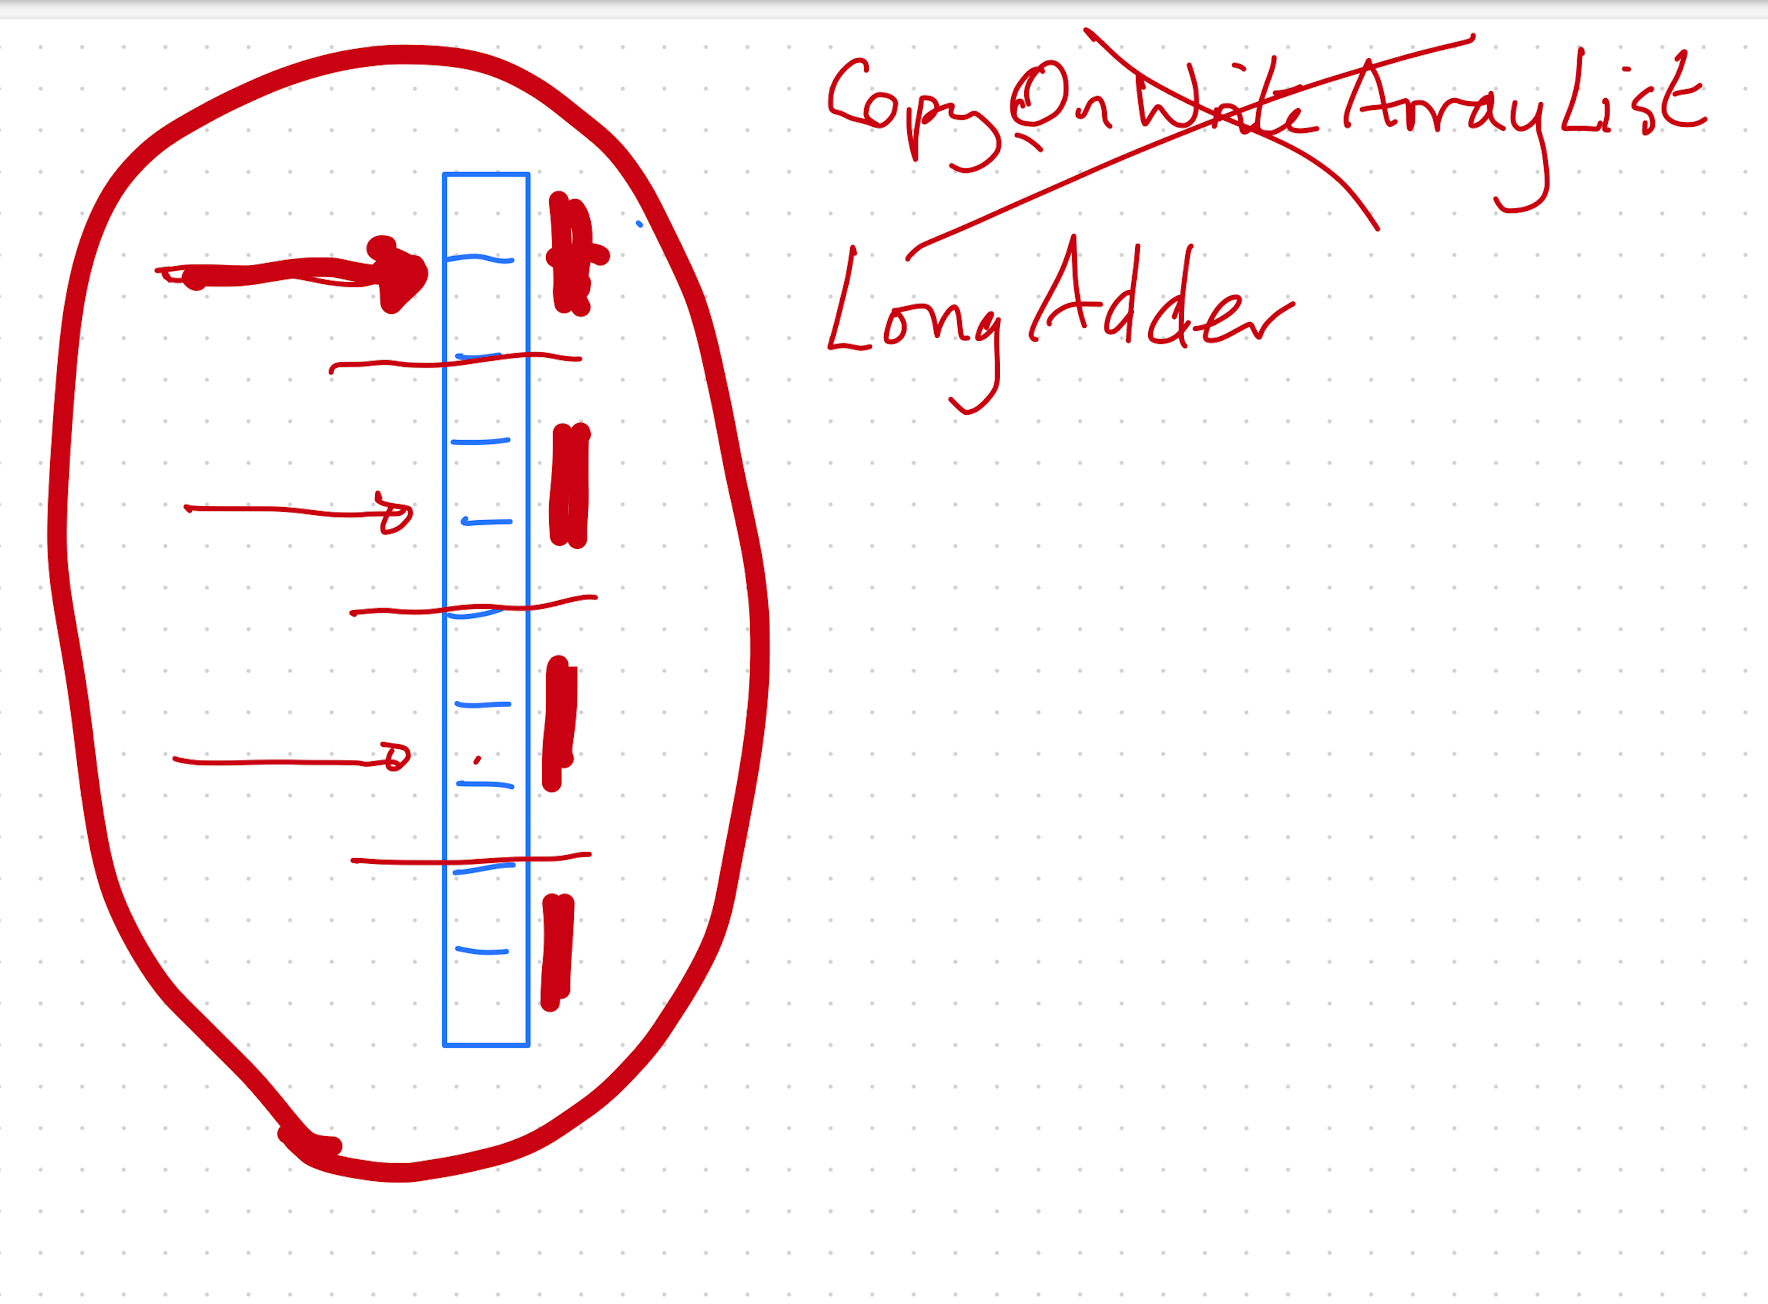 CopyOnWriteArrayList
LongAdder